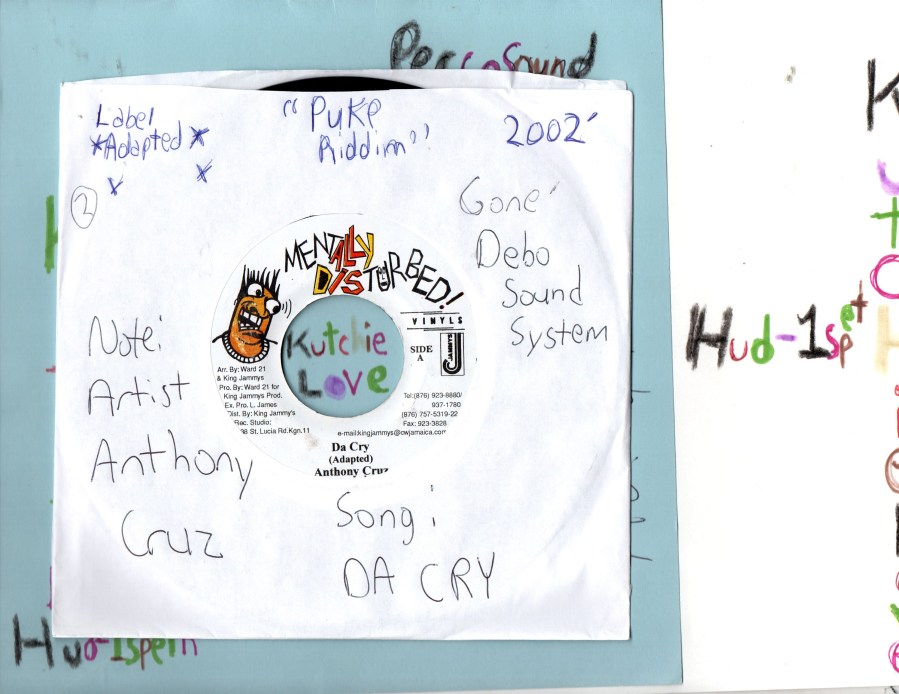 PercoSound
Label
*Adapted*
x x
"Puke
Riddim"
2002'
2
Gone'
Debo
Sound
System
MENTALLY
DISTURBED!
VINYLS
SIDE
A
JAMMYS
Kutchie
Love
Arr. By: Ward 21
& King Jammys
Pro. By: Ward 21 for
King Jammys Prod.
Ex. Pro. L. James
Dist. By: King Jammy's
Rec. Studio:
38 St. Lucia Rd.Kgn.11
Tel:(876) 923-8880/
937-1780
(876) 757-5319-22
Fax: 923-3828
e-mail:kingjammys@cwjamaica.com
Da Cry
(Adapted)
Anthony Cruz
Note:
Artist
Anthony
Cruz
Song:
DA CRY
Hud-1sperm
Hud-1spet